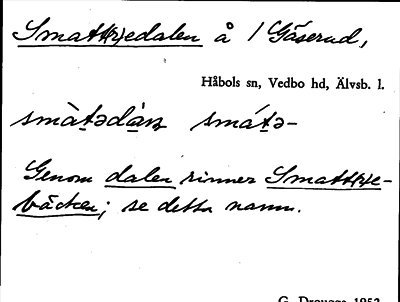 Smatt(r)edalen å / Gäserud,
Håbols sn, Vedbo hd, Älvsb. l.
smàtədàn smátə-
Genom dalen rinner Smatt(r)e-
bäcken; se detta namn.